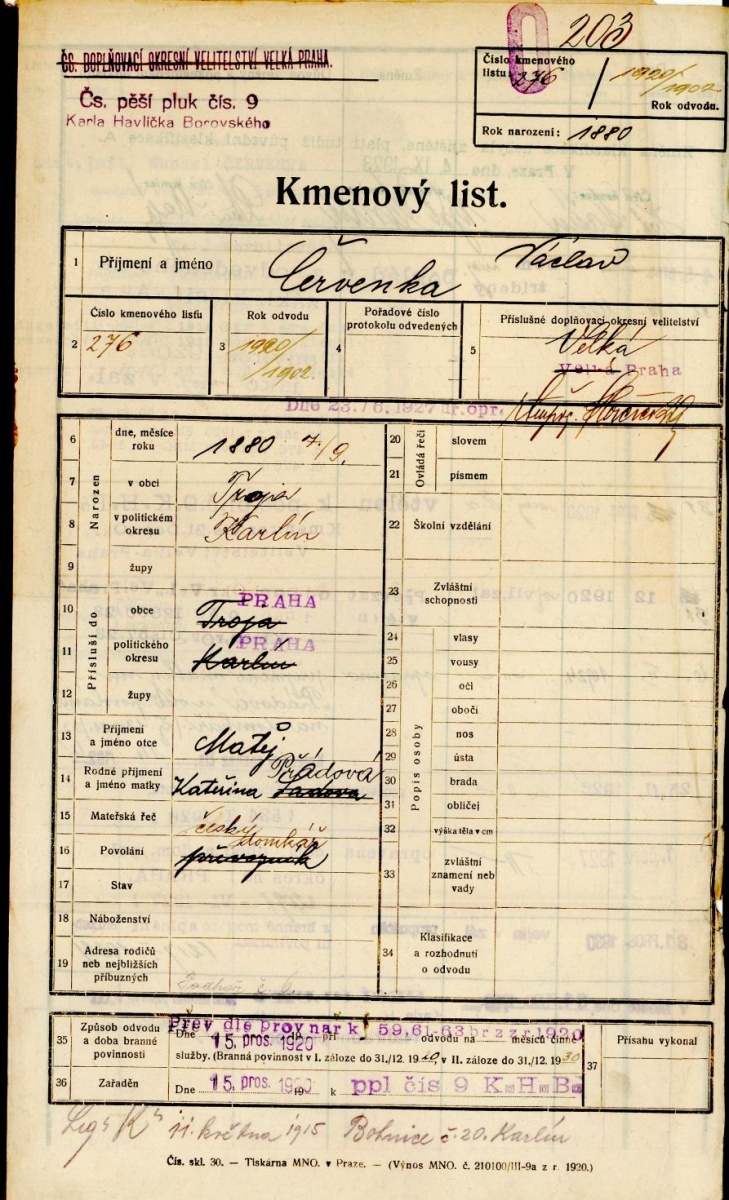 203
ČS. DOPLŇOVACÍ OKRESNÍ VELITELSTVÍ VELKÁ PRAHA.
Čs. pěší pluk čís. 9
Karla Havlíčka Borovského
Číslo kmenového listu: 276 / 1920/1902 Rok odvodu.
Rok narození: 1880
Kmenový list.
1 Příjmení a jméno Červenka Václav
2 Číslo kmenového listu 276
3 Rok odvodu 1920/1902
4 Pořadové číslo protokolu odvedených
5 Příslušné doplňovací okresní velitelství Velká
Velká Praha
Dne 23./6.1927 opr.
Narozen
6 dne, měsíce roku 1880 7/9.
7 v obci Troja
8 v politickém okresu Karlín
9 župy
Přísluší do
10 obce PRAHA Troja
11 politického okresu PRAHA Karlín
12 župy
13 Příjmení a jméno otce Matěj
14 Rodné příjmení a jméno matky Kateřina Přádová
15 Mateřská řeč český
16 Povolání domkář převozník
17 Stav
18 Náboženství
19 Adresa rodičů neb nejbližších příbuzných
Ovládá řeči
20 slovem
21 písmem
22 Školní vzdělání
23 Zvláštní schopnosti
Popis osoby
24 vlasy
25 vousy
26 oči
27 obočí
28 nos
29 ústa
30 brada
31 obličej
32 výška těla v cm
33 zvláštní znamení neb vady
34 Klasifikace a rozhodnutí o odvodu
35 Způsob odvodu a doba branné povinnosti
Přev dle prov nař k § 59,61-63 br z z r 1920
Dne 15. pros. 1920 19 při odvodu na měsíců činné
služby. (Branná povinnost v I. záloze do 31./12. 1920, v II. záloze do 31./12. 1930
36 Zařaděn Dne 15. pros. 1920 19 k ppl čís 9 K.H.B.
37 Přísahu vykonal
11. května 1915 Bohnice č. 20. Karlín
Čís. skl. 30. — Tiskárna MNO. v Praze. — (Výnos MNO. č. 210100/III-9a z r. 1920.)